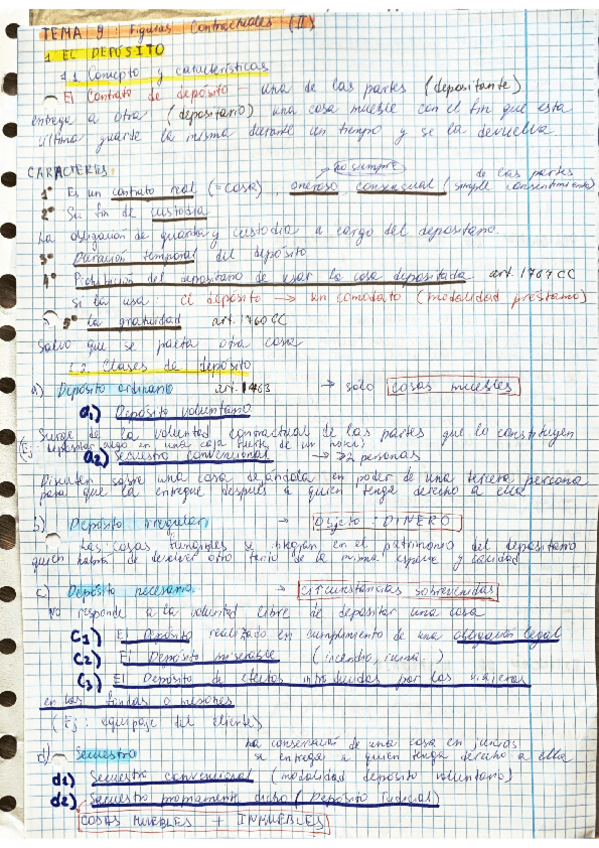 TEMA 9: Figuras Contractuales (II)
1 EL DEPÓSITO
1.1 Concepto y características
El Contrato de depósito - una de las partes (depositante)
entrega a otra (depositario) una cosa mueble con el fin que esta
última guarde la misma durante un tiempo y se la devuelva
CARACTERES:
no siempre
de las partes
1º Es un contrato real (=cosa), oneroso, consensual (simple consentimiento)
2º Su fin de custodia
La obligación de guarda y custodia a cargo del depositario.
3º Duración temporal del depósito
4º Prohibición del depositario de usar la cosa depositada art. 1767 CC
si la usa: el depósito → un comodato (modalidad préstamo)
5º La gratuidad art. 1760 CC
Salvo que se pacta otra cosa
1.2. Clases de depósito
a) Depósito ordinario art. 1463 → sólo cosas muebles
a1) Depósito voluntario
Surge de la voluntad contractual de las partes que lo constituyen
(Ej depositar algo en una caja fuerte de un)
a2) Secuestro convencional → >2 personas
Discuten sobre una cosa dejándola en poder de una tercera persona
para que la entregue después a quien tenga derecho a ella
b) Depósito irregular → Objeto: DINERO
Las cosas fungibles se integran en el patrimonio del depositario
quien habrá de devolver otro tanto de la misma especie y calidad
c) Depósito necesario → circunstancias sobrevenidas
No responde a la voluntad libre de depositar una cosa
c1) El Depósito realizado en cumplimiento de una obligación legal
c2) El Depósito miserable (incendio, ruina..)
c3) El Depósito de efectos introducidos por los viajeros
en las fondas o mesones
(Ej: equipaje del cliente)
d) Secuestro
La conservación de una cosa en
se entrega a quien tenga derecho a ella
d1) Secuestro convencional (modalidad depósito voluntario)
d2) Secuestro propiamente dicho (Depósito Judicial)
COSAS MUEBLES + INMUEBLES